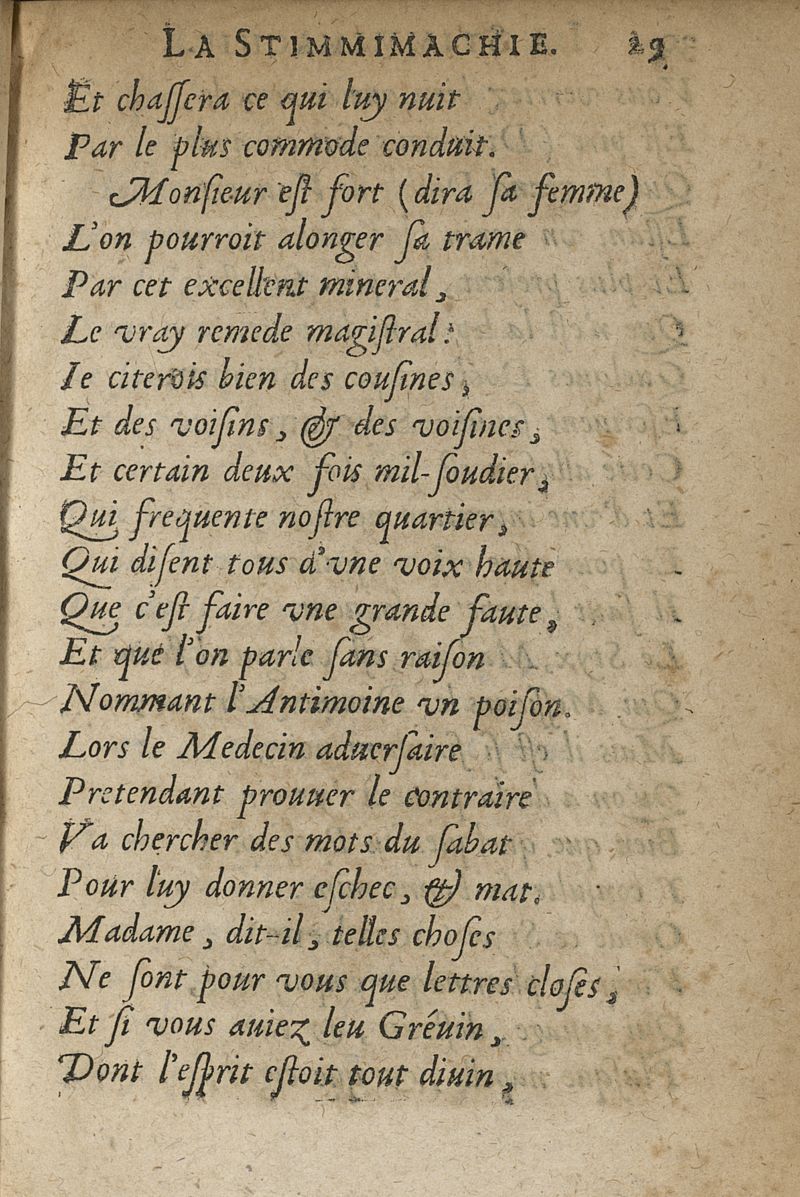 LA STIMMIMACHIE. 29
Et chaſſera ce qui luy nuit
Par le plus commode conduit.
Monſieur eſt fort (dira ſa femme)
L'on pourroit alonger ſa trame
Par cet excellent mineral,
Le vray remede magiſtral:
Ie citerois bien des couſines,
Et des voiſins, & des voiſines,
Et certain deux fois mil-ſoudier,
Qui frequente noſtre quartier,
Qui diſent tous d'vne voix haute
Que c'eſt faire vne grande faute,
Et que l'on parle ſans raiſon
Nommant l'Antimoine vn poiſon.
Lors le Medecin aduerſaire
Pretendant prouuer le contraire
Va chercher des mots du ſabat
Pour luy donner eſchec, & mat.
Madame, dit-il, telles choſes
Ne ſont pour vous que lettres cloſes,
Et ſi vous auiez leu Gréuin,
Dont l'eſprit eſtoit tout diuin,